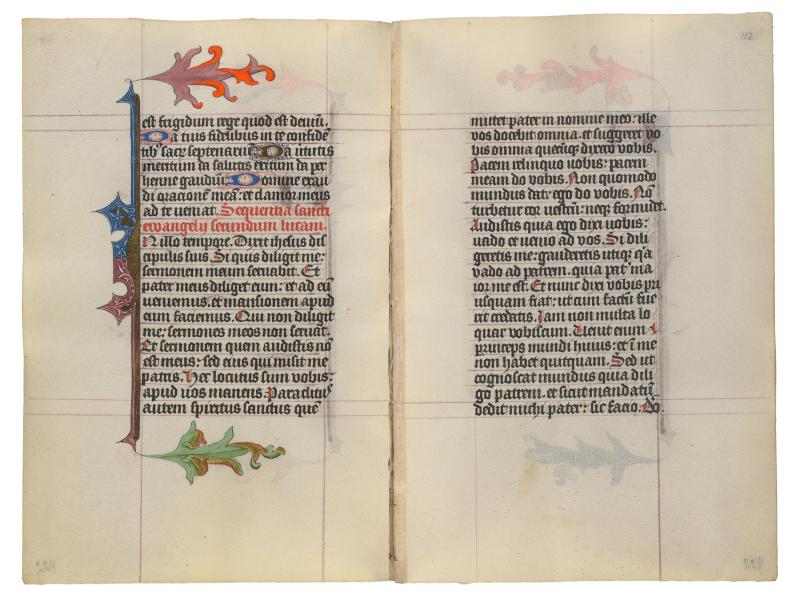 est frigidum rege quod est deuiū.
Da tuis fidelibus in te confidē
tibꝫ sacꝝ septenariū Da uirtutis
meritum da salutis exitum da per
henne gaudiuꝫ Domine exau
di orationē meā: et clamor meus
ad te ueniat. Sequentia sancti
ewangelij secundum lucam.
In illo tempore. Dixit ihesus dis
cipulis suis. Si quis diligit me:
sermonem meum seruabit. Et
pater meus diliget eum: et ad eū
ueniemus. et mansionem apud
eum faciemus. Qui non diligit
me: sermones meos non seruat.
Et sermonem quem audistis nō
est meus: sed eius qui misit me
patris. Hec locutus sum vobis:
apud uos manens. Paraclitus
autem spiritus sanctus quē
112
mittet pater in nomine meo: ille
vos docebit omnia. et suggeret vo
bis omnia quecūqꝫ dixero vobis.
Pacem relinquo uobis: pacem
meam do vobis. Non quomodo
mundus dat: ego do vobis. Nō
turbetur cor uestrū: neqꝫ formidet.
Audistis quia ego dixi uobis:
uado et uenio ad vos. Si dili
geretis me: gauderetis utiqꝫ qͣ
vado ad patrem. quia pat᷑ ma
ior me est. Et nunc dixi vobis pri
usquam fiat: ut cum factū fue
rit credatis. Iam non multa lo
quar vobiscum. Uenit enim
princeps mundi huius: et ī me
non habet quitquam. Sed ut
cognoscat mundus quia dili
go patrem. et sicut mandatū
dedit michi pater: sic facio. Do.